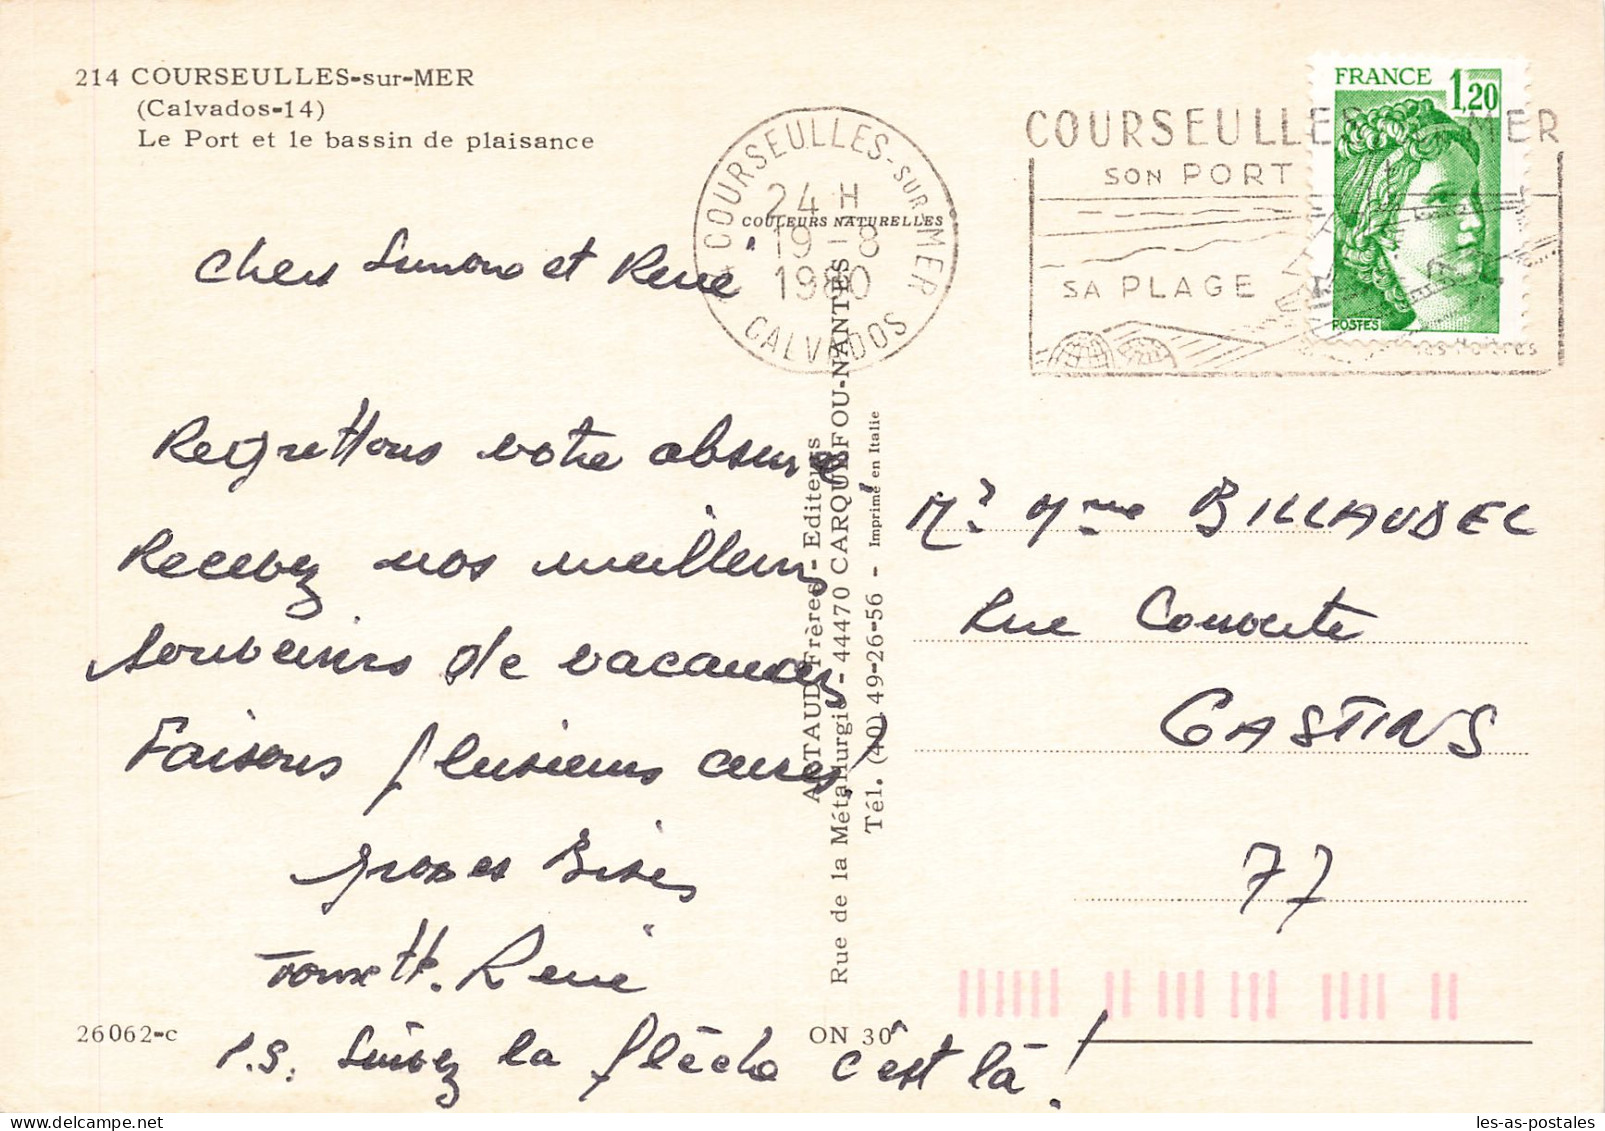 214 COURSEULLES-sur-MER
(Calvados-14)
Le Port et le bassin de plaisance
COURSEULLES-SUR-MER
24 H
19-8
1980
CALVADOS
COULEURS NATURELLES
COURSEULLES MER
SON PORT
SA PLAGE
FRANCE
1,20
POSTES
Chers Simone et René
Regrettons votre absence,
Recevez nos meilleurs
souvenirs de vacances
Faisons plusieurs
grosses Bises
René
P.S. Suivez la flèche c'est là !
ARTAUD Frères - Editeurs
Rue de la Métallurgie - 44470 CARQUEFOU-NANTES
Tél. (40) 49-26-56 - Imprimé en Italie
Mr Mme BILLAUDEL
Rue Couverte
GASTINS
77
26062-c
ON 30
les-as-postales